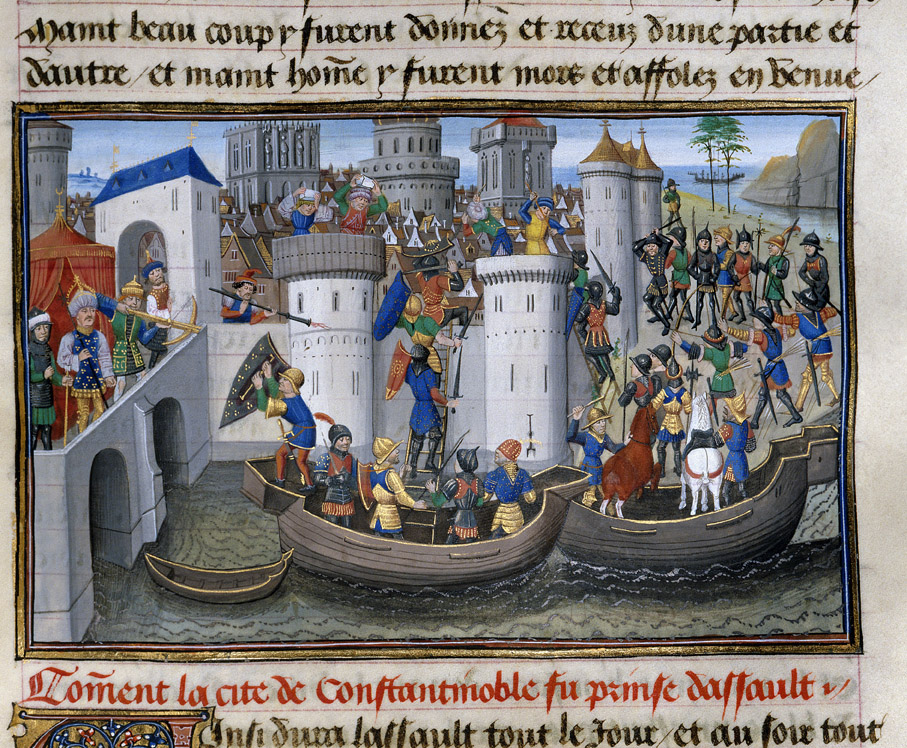 Maint beau coup y furent donnez et receuz dune partie et
dautre / et maint hom̃e y furent mors et affolez en venue /
Com̃ent la cite de Constantinoble fu prinse dassault
Ainsi dura lassault tout le Jour / et au soir tout